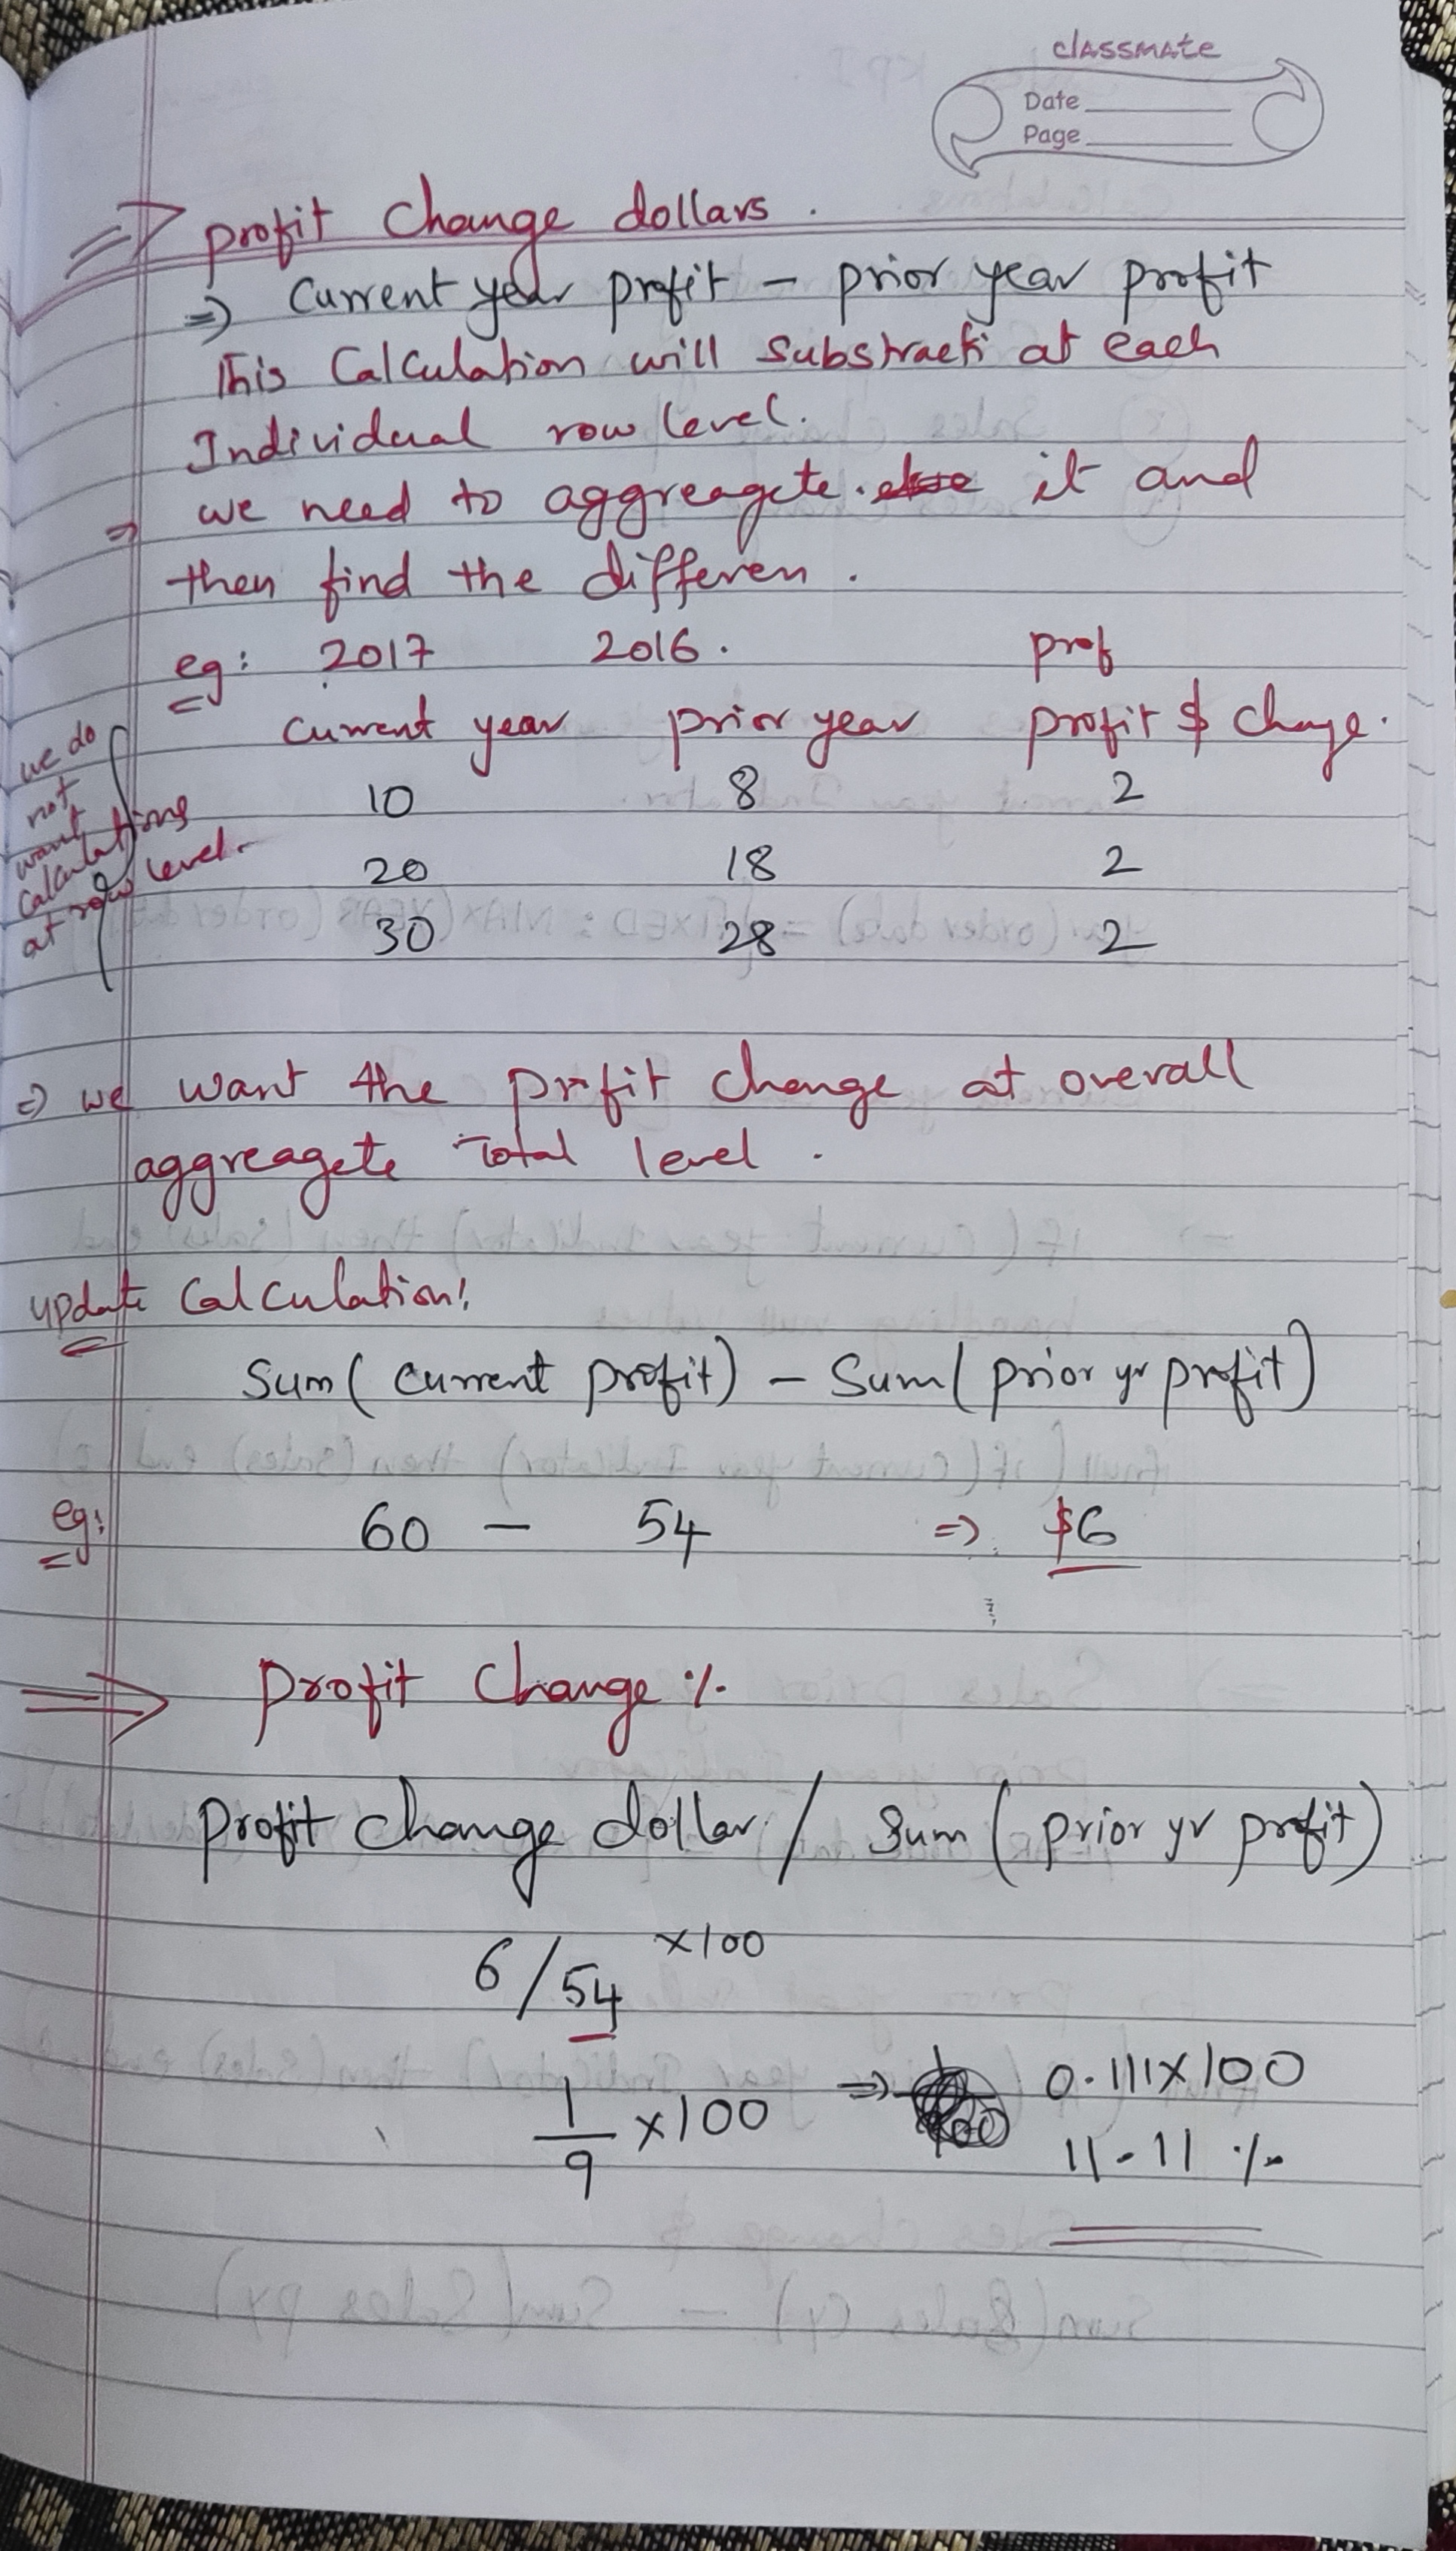 classmate
Date
Page
⇒ profit Change dollars.
⇒ Current year profit - prior year profit
This Calculation will Substract at each
Individual row level.
⇒ we need to aggreagete. it and
then find the differen.
eg: 2017 2016. prof
Current year prior year profit $ change.
we do
not
want
calculations
at row level.
10 8 2
20 18 2
30 28 2
⇒ we want the profit change at overall
aggreagete Total level.
update Calculation:
Sum( Current profit) - Sum( prior yr profit)
eg: 60 - 54 ⇒ $6
⇒ Profit Change %
Profit change dollar / Sum ( prior yr profit)
6/54 x100
1/9 x100 ⇒ 0.111x100
11.11 %